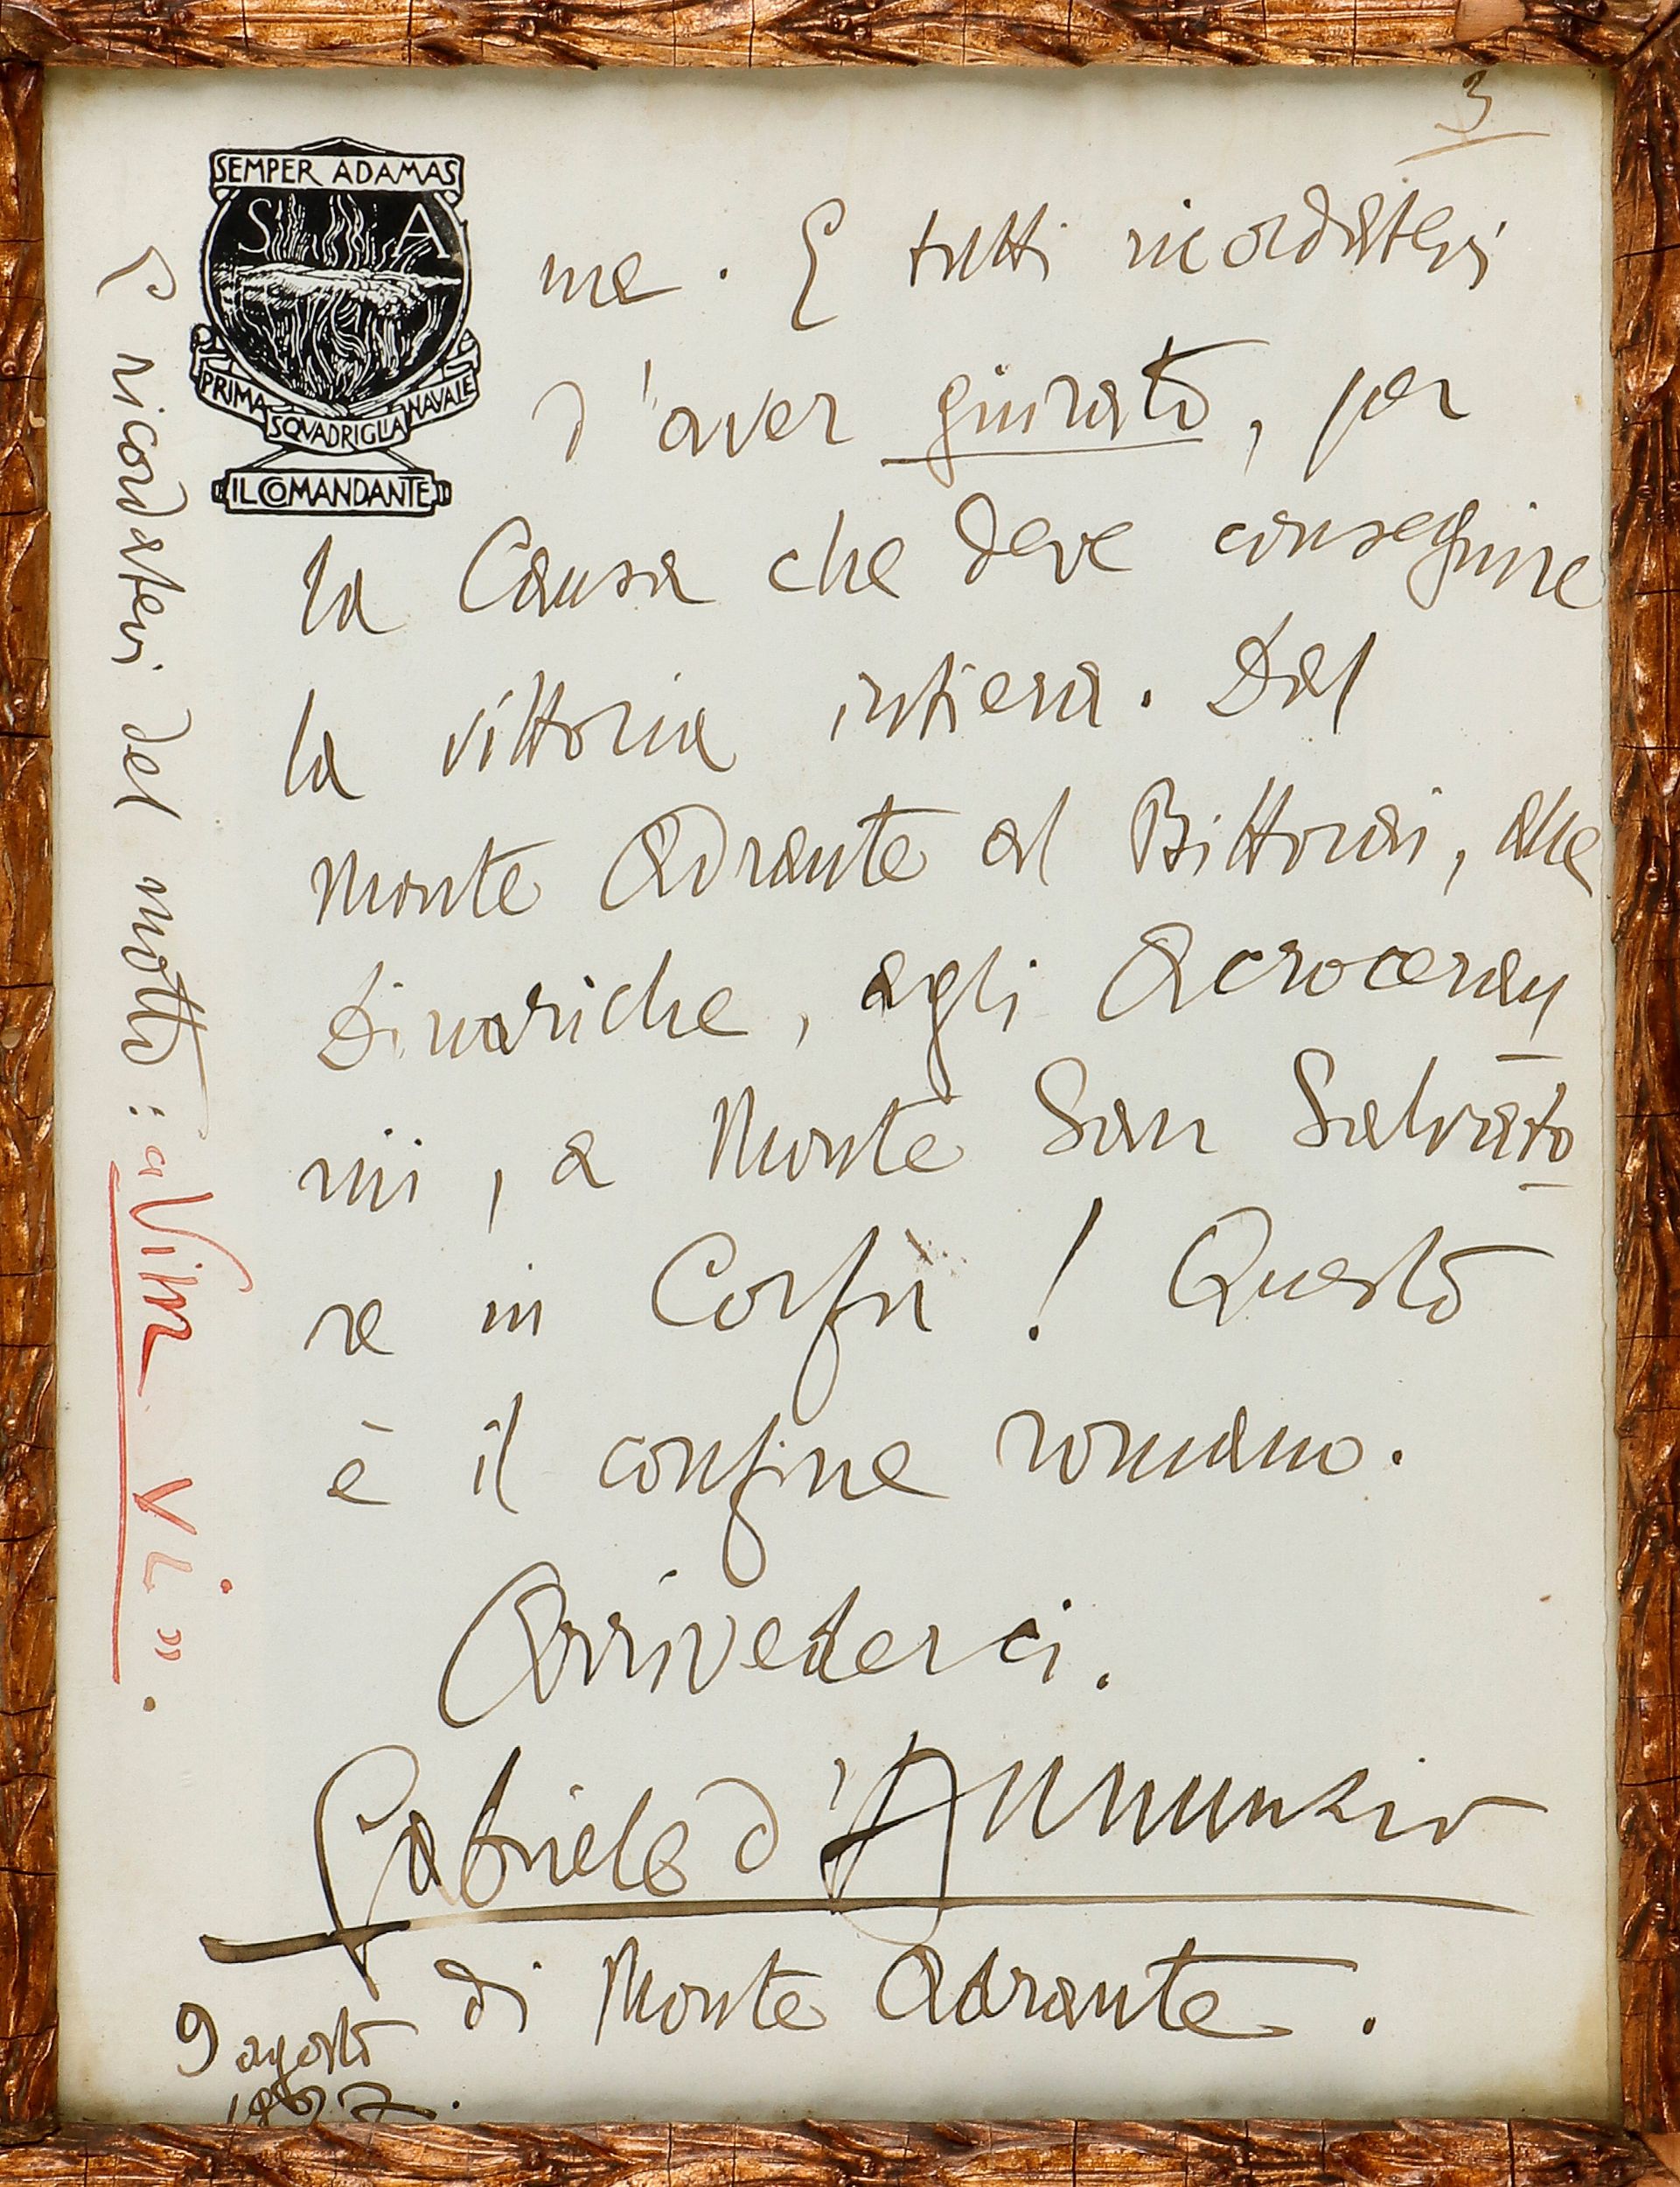 3
SEMPER ADAMAS
S A
PRIMA SQVADRIGLIA NAVALE
IL COMANDANTE
me. E tutti ricordatevi
d'aver giurato, per
la Causa che deve conseguire
la vittoria intiera. Dal
Monte Adrante al Bittorai, alle
Dinariche, agli Acrocerau
nii, a Monte San Salvato
re in Corfù! Questo
è il confine romano.
Arrivederci.
Gabriele d'Annunzio
di Monte Adrante.
9 agosto
E ricordatevi del motto: «Vim vi».